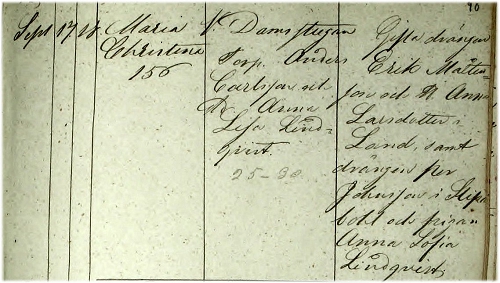 10
Sept 17 18. Maria
Christina
156
V. Damstugan
Torp. Anders
Carlsson och
H. Anna
Lisa Lind-
qvist.
25-30
Gifta drängen
Erik Matts-
son och H. Anna
Larsdotter i
Land, samt
drängen Per
Johnsson i
bohl och pigan
Anna Sofia
Lindqvist